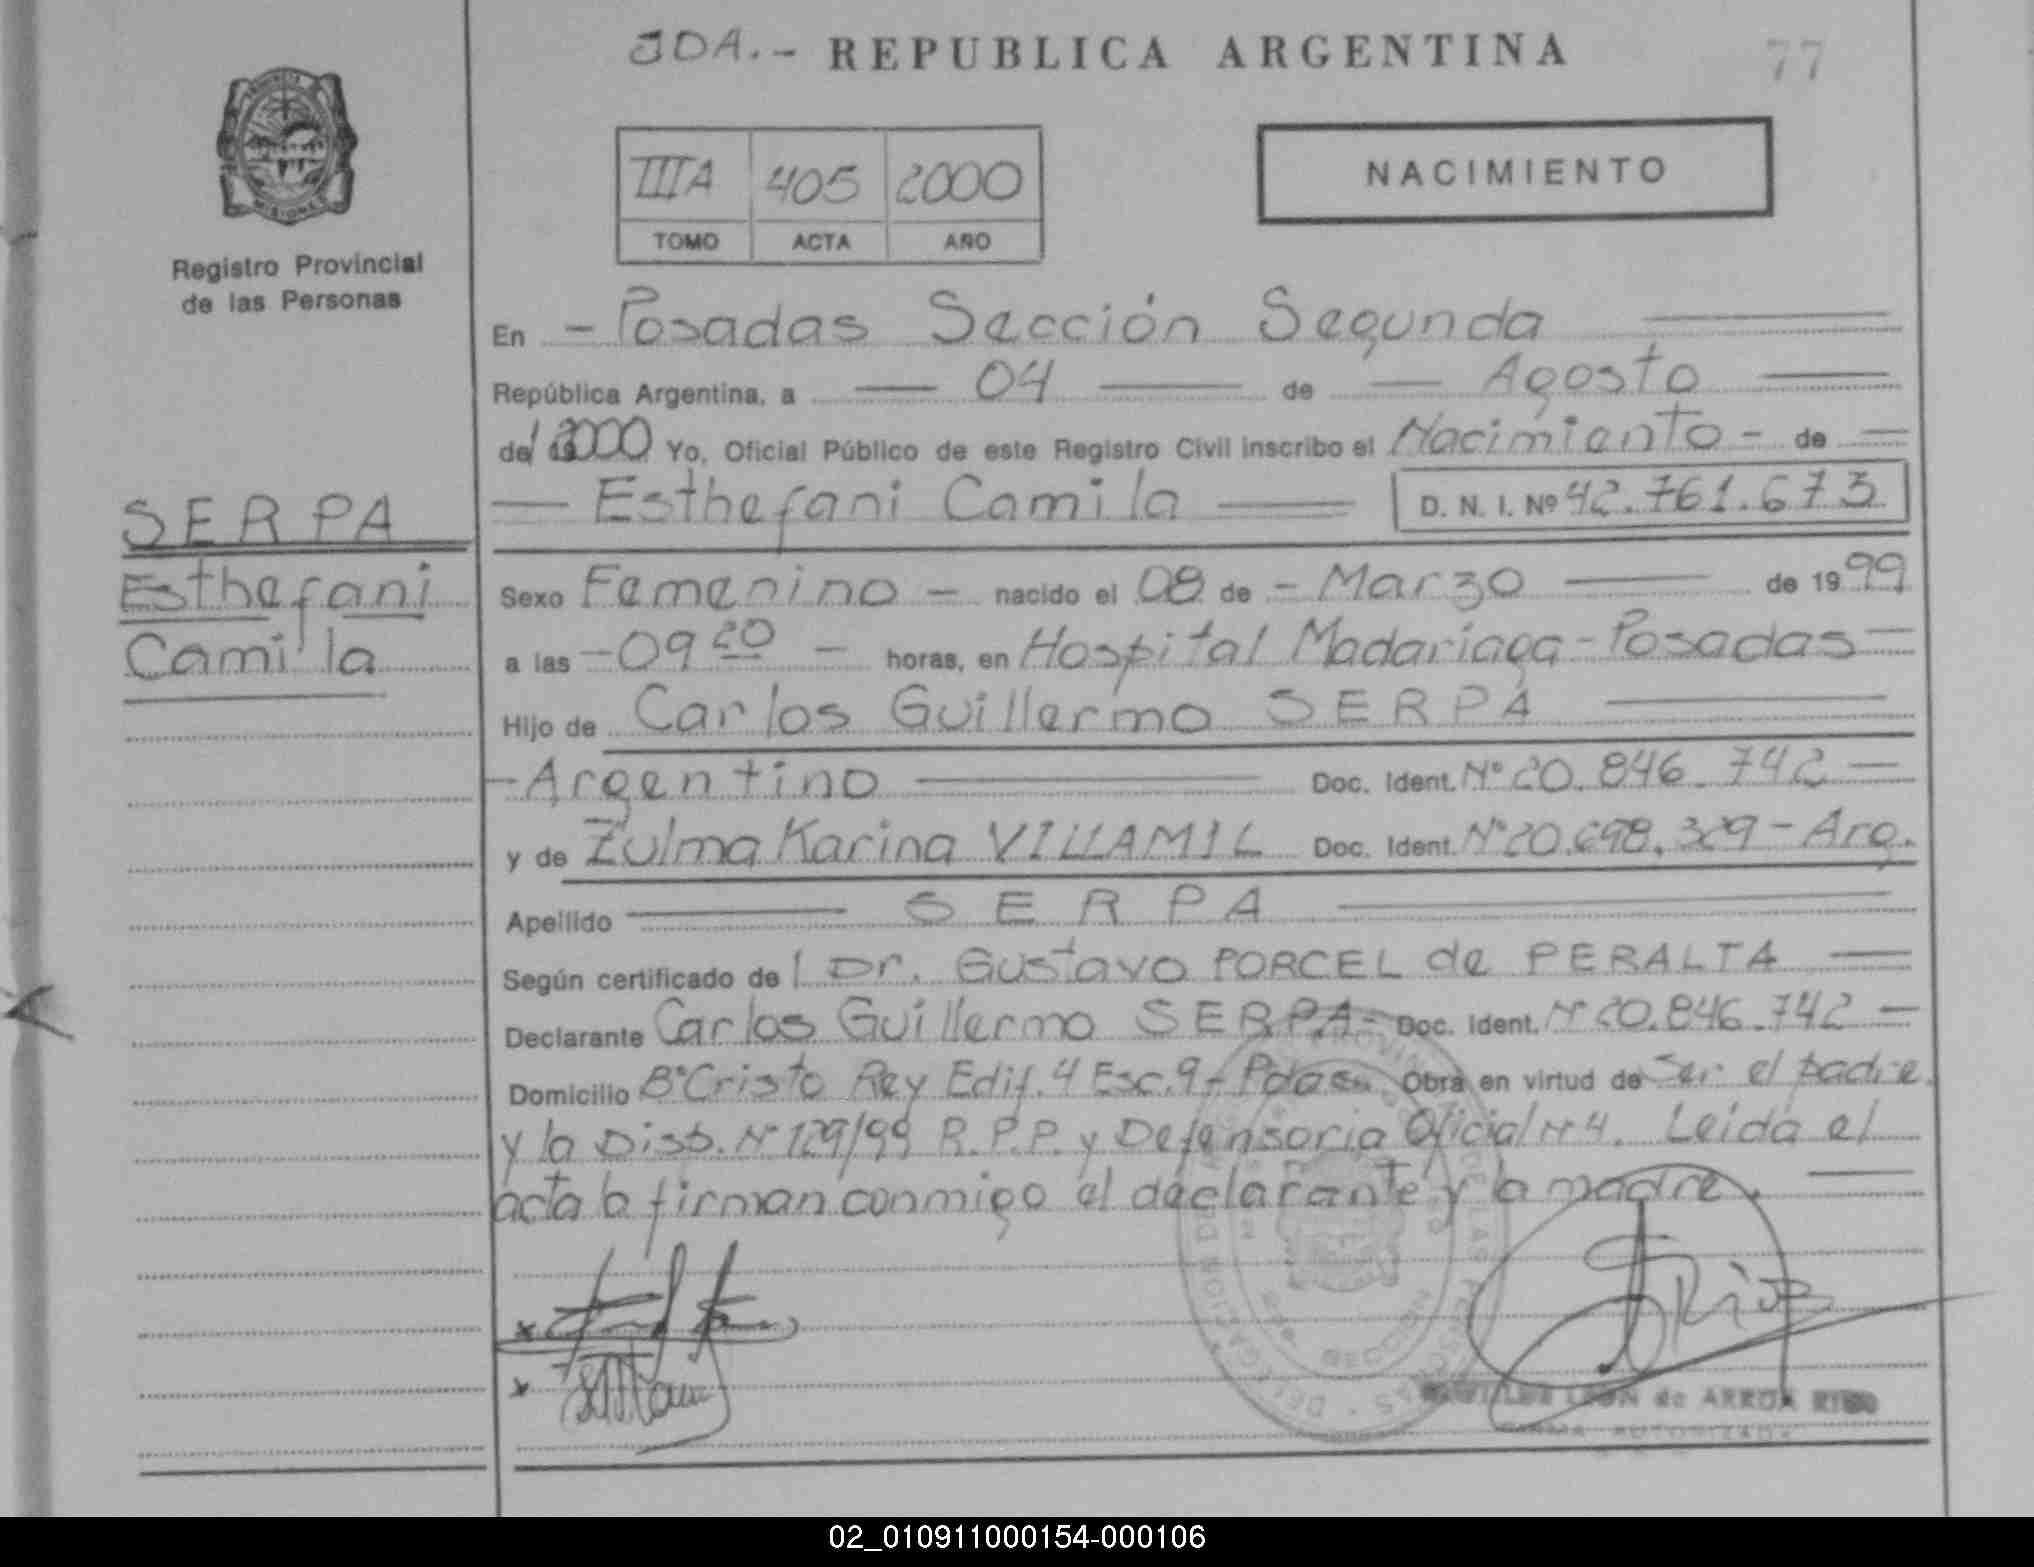 JDA.- REPUBLICA ARGENTINA 77
PROVINCIA DE MISIONES
Registro Provincial
de las Personas
IIIA 405 2000
TOMO ACTA AÑO
NACIMIENTO
En - Posadas Sección Segunda
República Argentina, a 04 de Agosto
de 2000 Yo, Oficial Público de este Registro Civil inscribo el Nacimiento - de
Esthefani Camila D. N. I. Nº 42.761.673
SERPA
Esthefani
Camila
Sexo Femenino - nacido el 08 de - Marzo de 1999
a las - 09 20 - horas, en Hospital Madariaga - Posadas
Hijo de Carlos Guillermo SERPA
- Argentino Doc. Ident. Nº 20.846.742
y de Zulma Karina VILLAMIL Doc. Ident. Nº 20.698.329 - Arg.
Apellido SERPA
Según certificado de Dr. Gustavo PORCEL de PERALTA
Declarante Carlos Guillermo SERPA - Doc. Ident. Nº 20.846.742 -
Domicilio Bº Cristo Rey Edif. 4 Esc. 9 - Pdas. Obra en virtud de Ser el padre
y la Disp. Nº 129/99 R.P.P. y Defensoria Oficial Nº 4. Leida el
acta la firman conmigo el declarante y la madre.
LEON de ARRUA RIOS
FIRMA AUTORIZADA
02_010911000154-000106